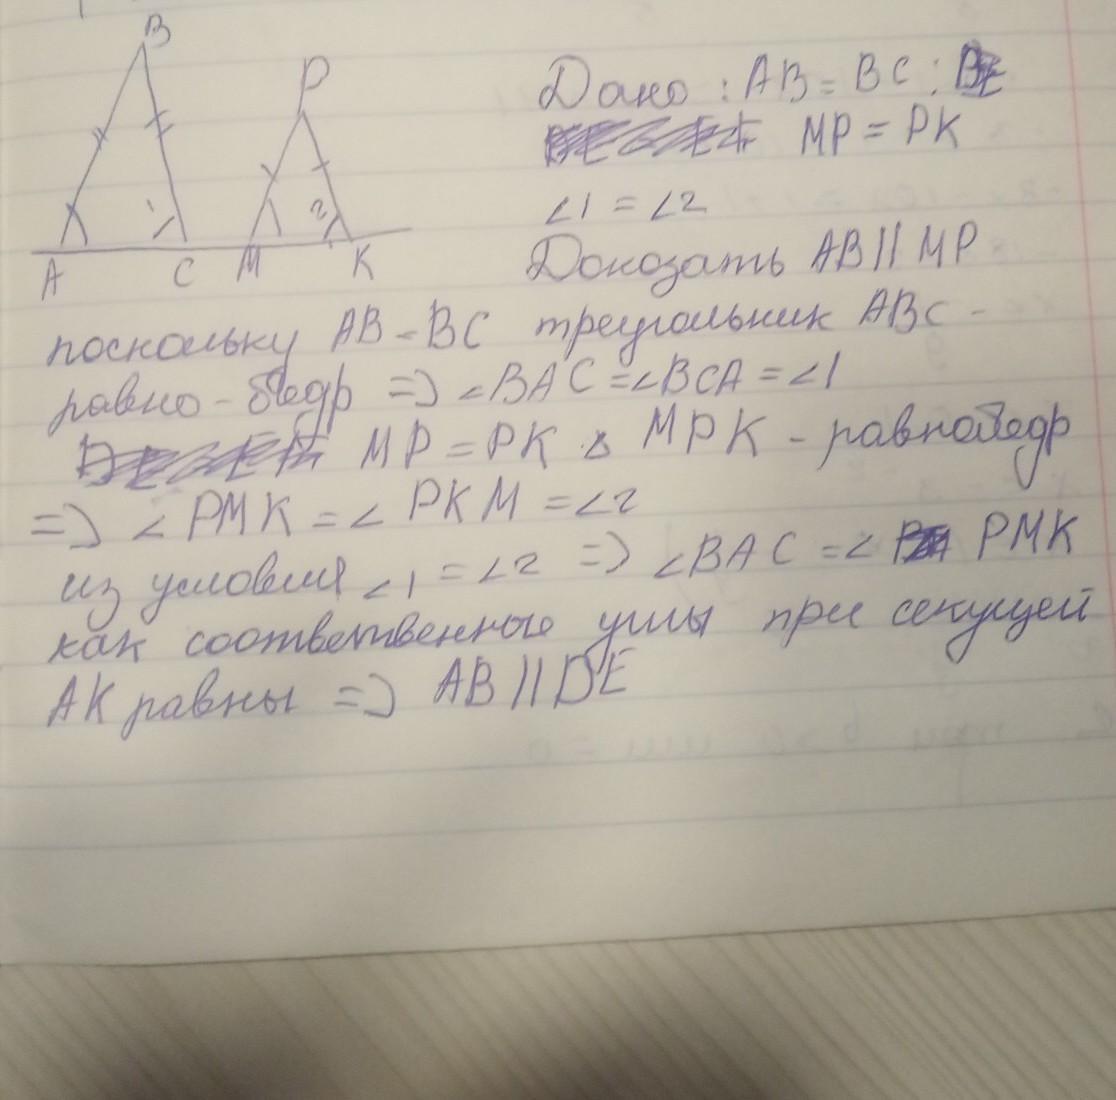 B
P
1
2
A C M K
Дано : AB = BC ;
MP = PK
∠1 = ∠2
Доказать AB || MP
поскольку AB = BC треугольник ABC -
равно-бедр => ∠BAC = ∠BCA = ∠1
MP = PK Δ MPK - равнобедр
=> ∠ PMK = ∠ PKM = ∠2
из условия ∠1 = ∠2 => ∠BAC = ∠ PMK
как соответственные углы при секущей
AK равны => AB || DE